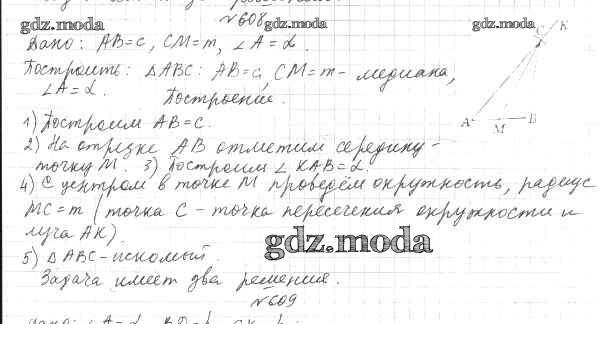 №608
gdz.moda gdz.moda gdz.moda
Дано: AB=c, CM=m, ∠A=α.
K
C
Построить: ΔABC: AB=c, CM=m - медиана,
∠A=α.
Построение.
1) Построим AB=c.
A M B
2) На отрезке AB отметим середину-
точку M. 3) Построим ∠KAB=α.
4) С центром в точке M проведём окружность, радиус
MC=m (точка C - точка пересечения окружности и
луча AK).
gdz.moda
5) ΔABC-искомый.
Задача имеет два решения.
№609
Дано: ∠A=α,